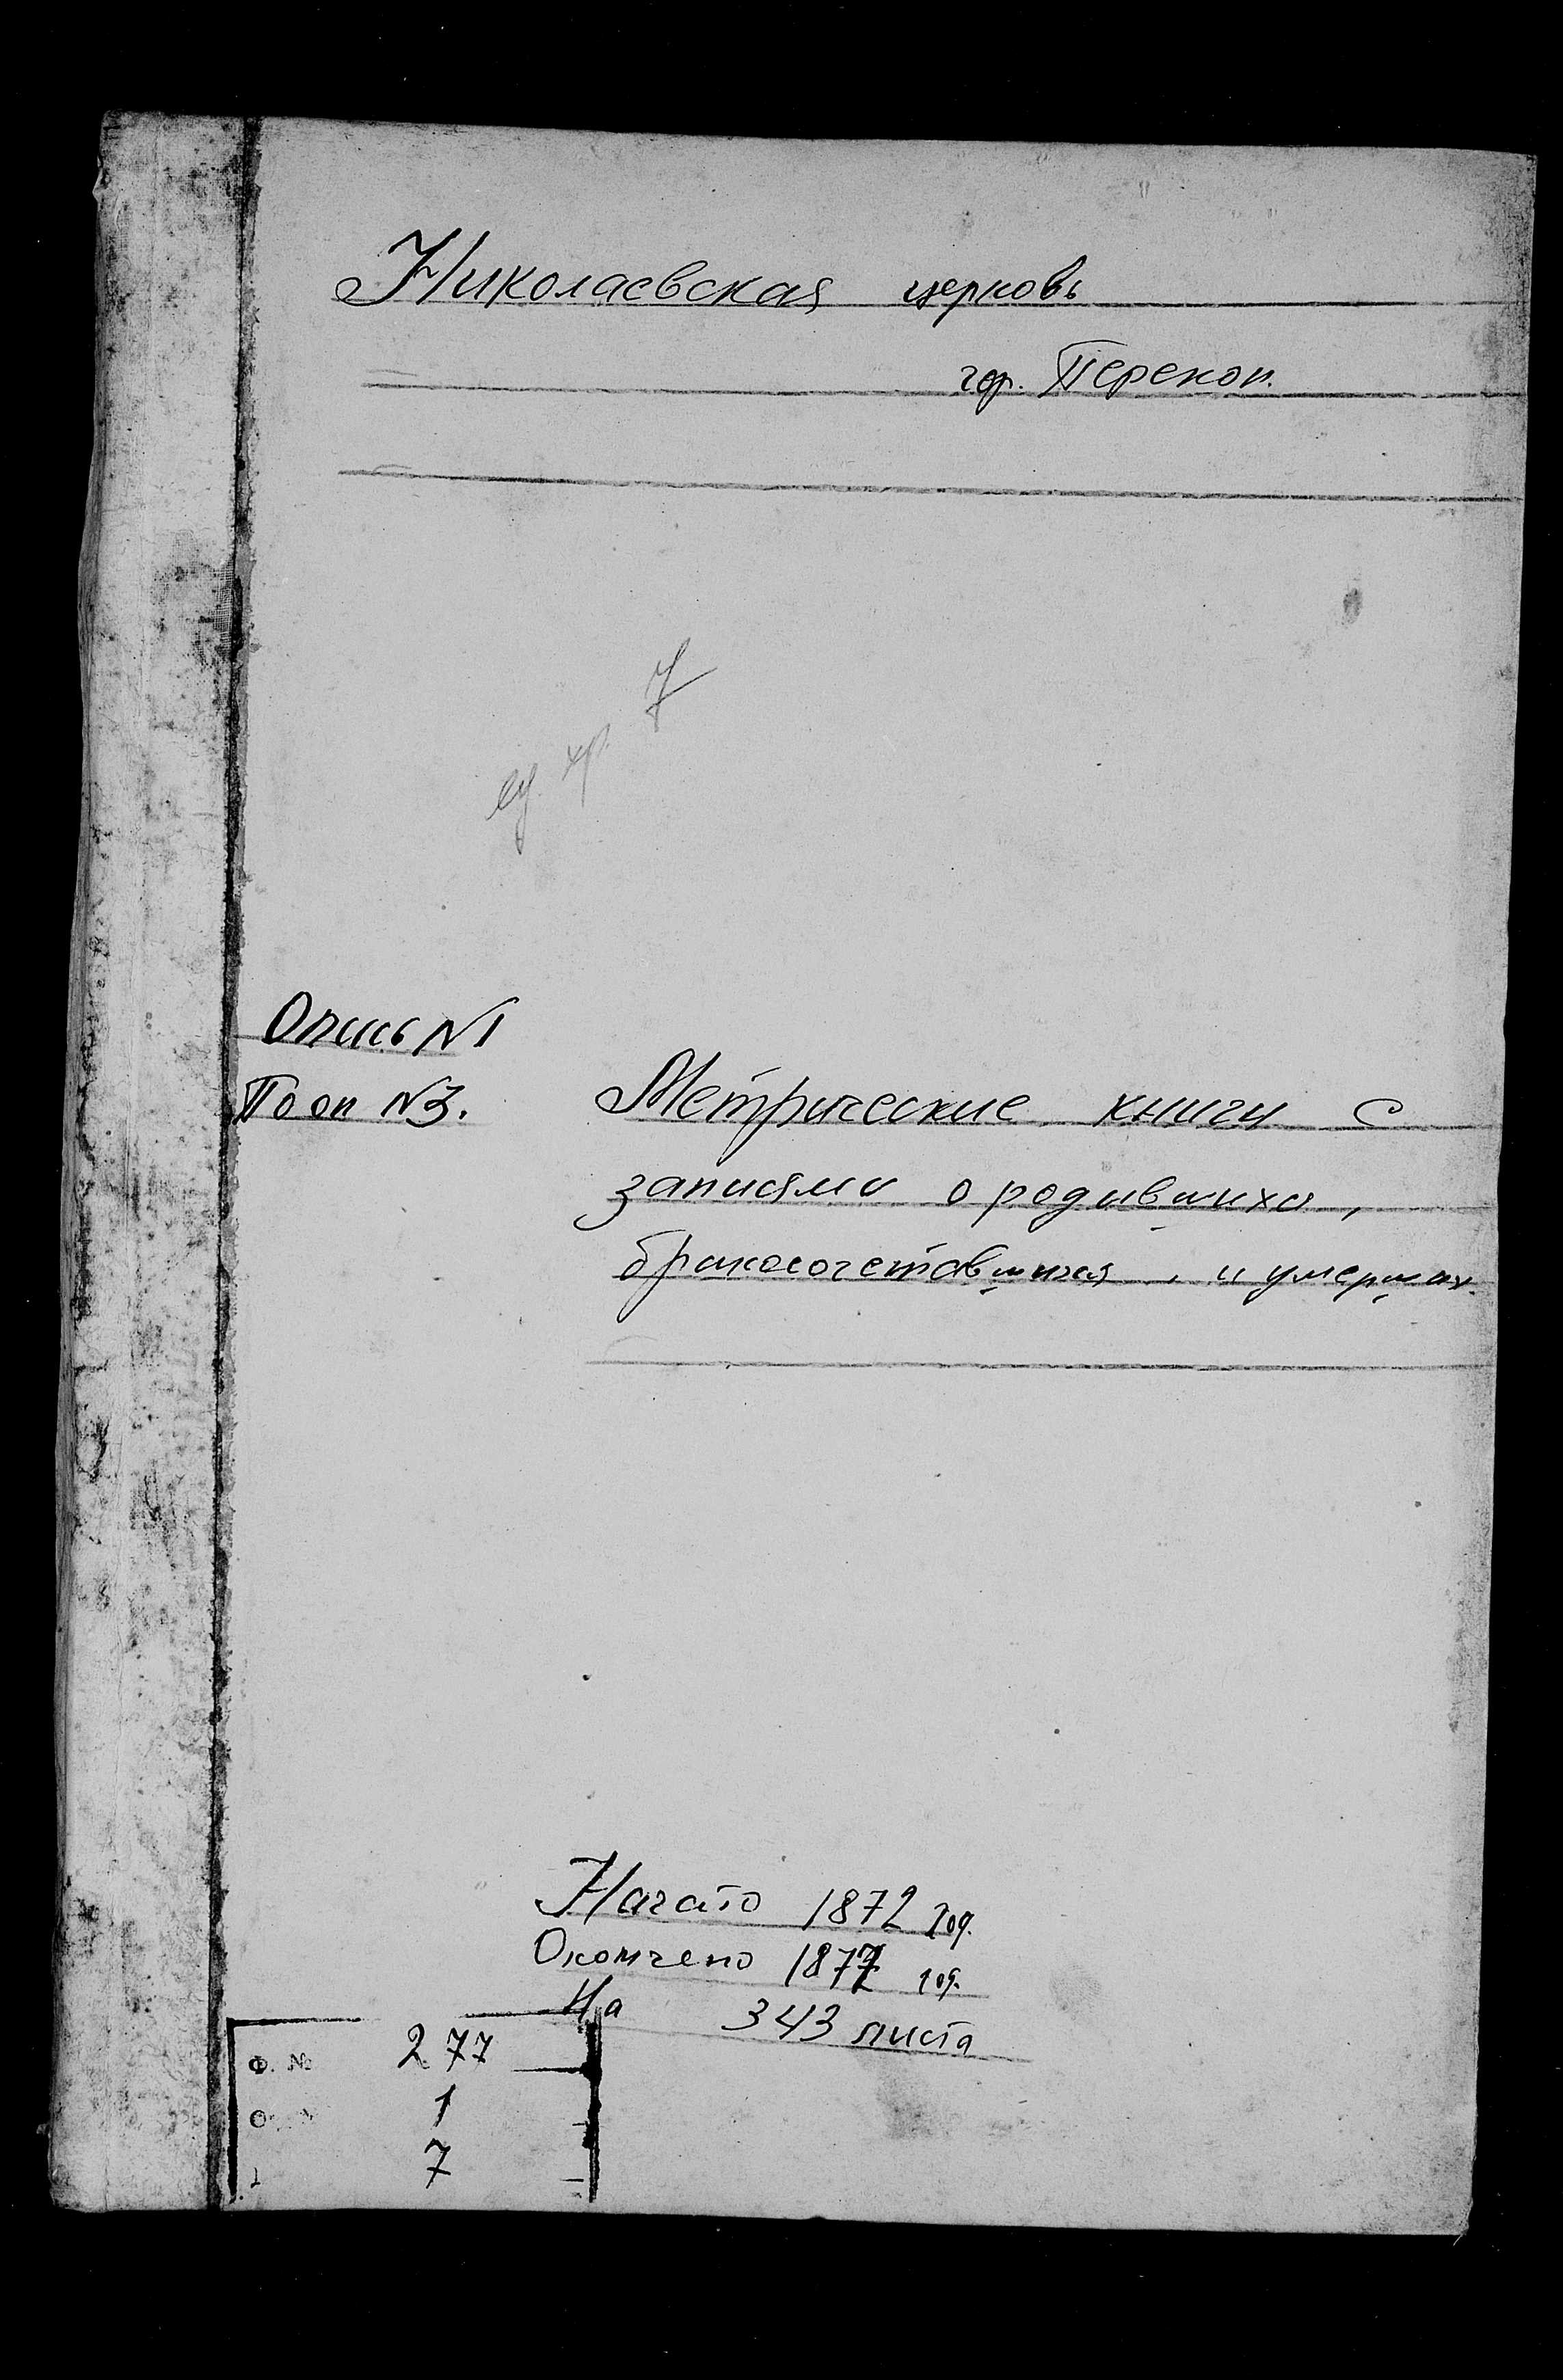 Николаевская церковь
гор. Перекоп.
ед. хр. 7
Опись №1
По оп №3.
Метрические книги с
записями о родившихся,
бракосочетавшихся, и умерших.
Начато 1872 год.
Окончено 1877 год.
На 343 листа
Ф. № 277
1
7